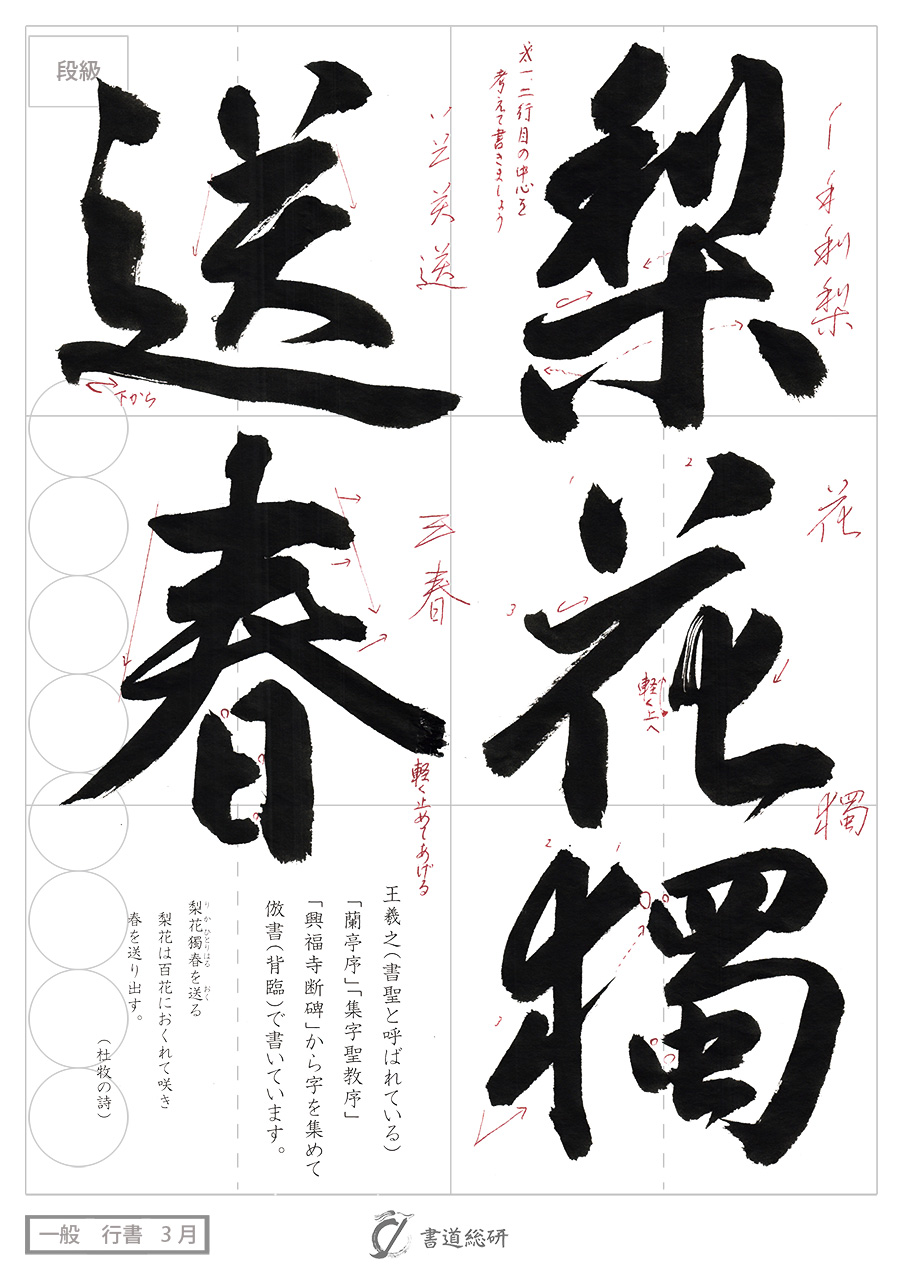 梨花獨
送春
段級
※一、二行目の中心を
考えて書きましょう
利
梨
花
獨
送
下から
三
春
軽く上へ
軽く止めてあげる
1
2
3
1
2
3
王羲之(書聖と呼ばれている)
「蘭亭序」「集字聖教序」
「興福寺断碑」から字を集めて
倣書(背臨)で書いています。
梨花獨春を送る
りかひとりはる おく
梨花は百花におくれて咲き
春を送り出す。
(杜牧の詩)
一般 行書 3月
書道総研